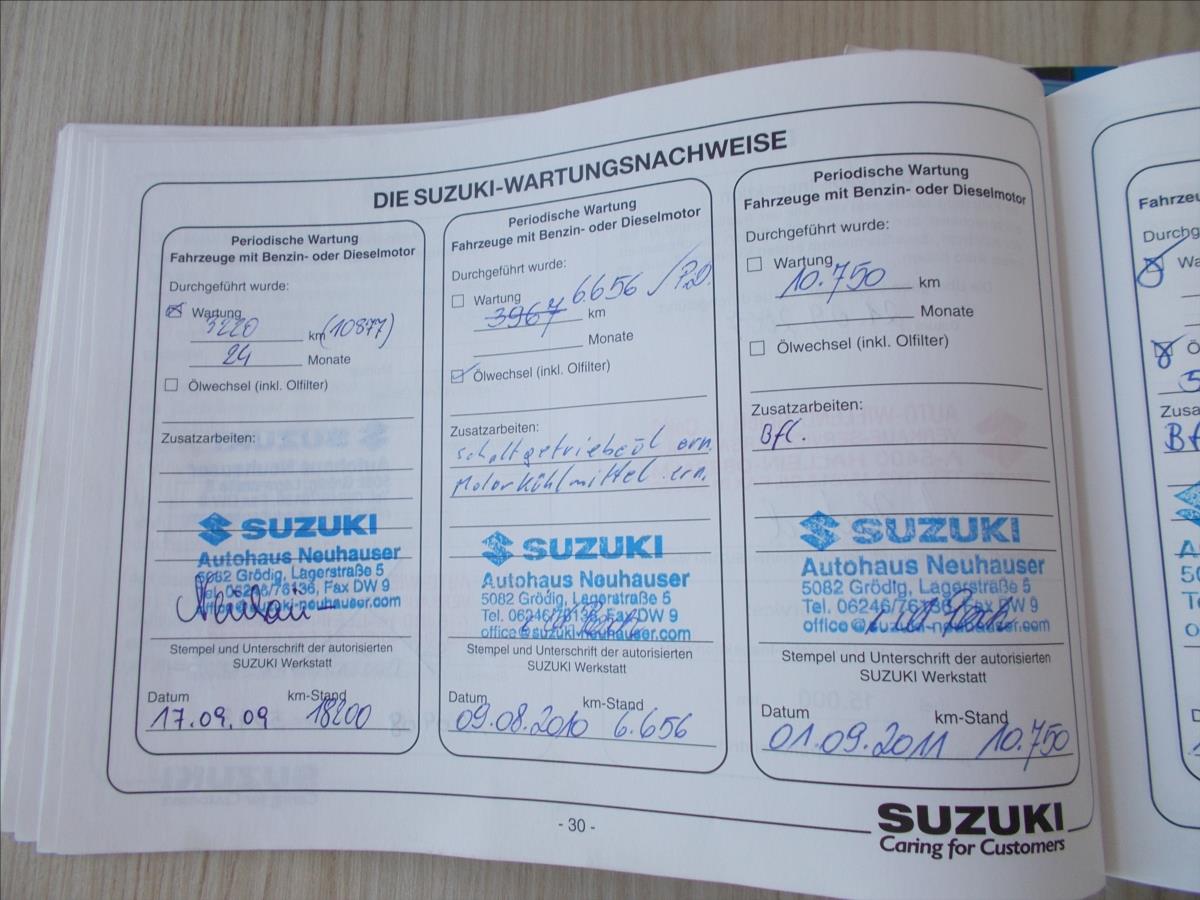 DIE SUZUKI-WARTUNGSNACHWEISE
Periodische Wartung
Fahrzeuge mit Benzin- oder Dieselmotor
Durchgeführt wurde:
Wartung
3220 km (10877)
24 Monate
Ölwechsel (inkl. Olfilter)
Zusatzarbeiten:
SUZUKI
Autohaus Neuhauser
5082 Grödig, Lagerstraße 5
Tel. 06246/76136, Fax DW 9
office@suzuki-neuhauser.com
Stempel und Unterschrift der autorisierten
SUZUKI Werkstatt
Datum km-Stand
17.09.09 18200
Periodische Wartung
Fahrzeuge mit Benzin- oder Dieselmotor
Durchgeführt wurde:
Wartung 6.656 /
3967 km
Monate
Ölwechsel (inkl. Olfilter)
Zusatzarbeiten:
Schaltgetriebeöl ern.
Motorkühlmittel ern.
SUZUKI
Autohaus Neuhauser
5082 Grödig, Lagerstraße 5
Tel. 06246/76136, Fax DW 9
office@suzuki-neuhauser.com
Stempel und Unterschrift der autorisierten
SUZUKI Werkstatt
Datum km-Stand
09.08.2010 6.656
Periodische Wartung
Fahrzeuge mit Benzin- oder Dieselmotor
Durchgeführt wurde:
Wartung
10.750 km
Monate
Ölwechsel (inkl. Olfilter)
Zusatzarbeiten:
Bfl.
SUZUKI
Autohaus Neuhauser
5082 Grödig, Lagerstraße 5
Tel. 06246/76136, Fax DW 9
office@suzuki-neuhauser.com
Stempel und Unterschrift der autorisierten
SUZUKI Werkstatt
Datum km-Stand
01.09.2011 10.750
- 30 -
SUZUKI
Caring for Customers